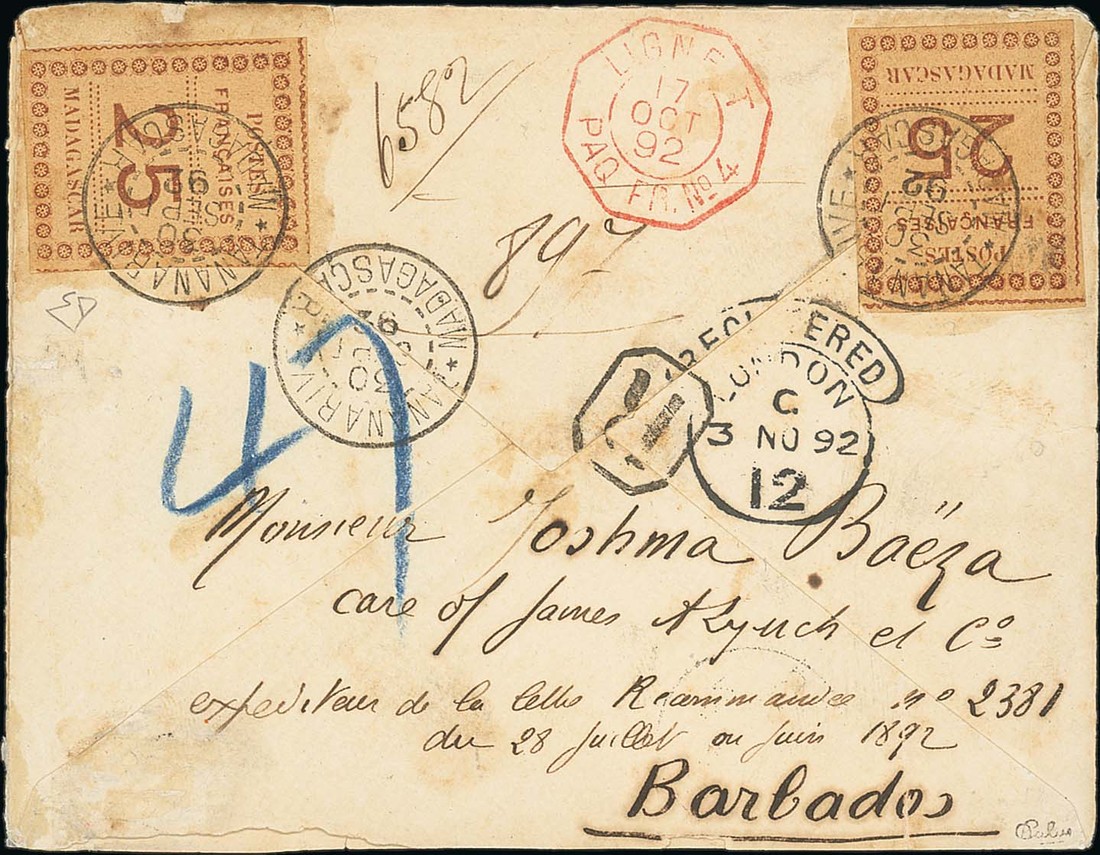 POSTES
FRANÇAISES
25
MADAGASCAR
6582
LIGNE T
17
OCT
92
PAQ. FR. No. 4
MADAGASCAR
25
FRANÇAISES
POSTES
TANANARIVE
30
SEPT
92
MADAGASCAR
R
REGISTERED
LONDON
C
3 NO 92
12
Monsieur Joshma Baëza
care of James A Lynch et Co
expediteur de la lettre Recommandée no 2381
du 28 juillet ou juin 1892
Barbados